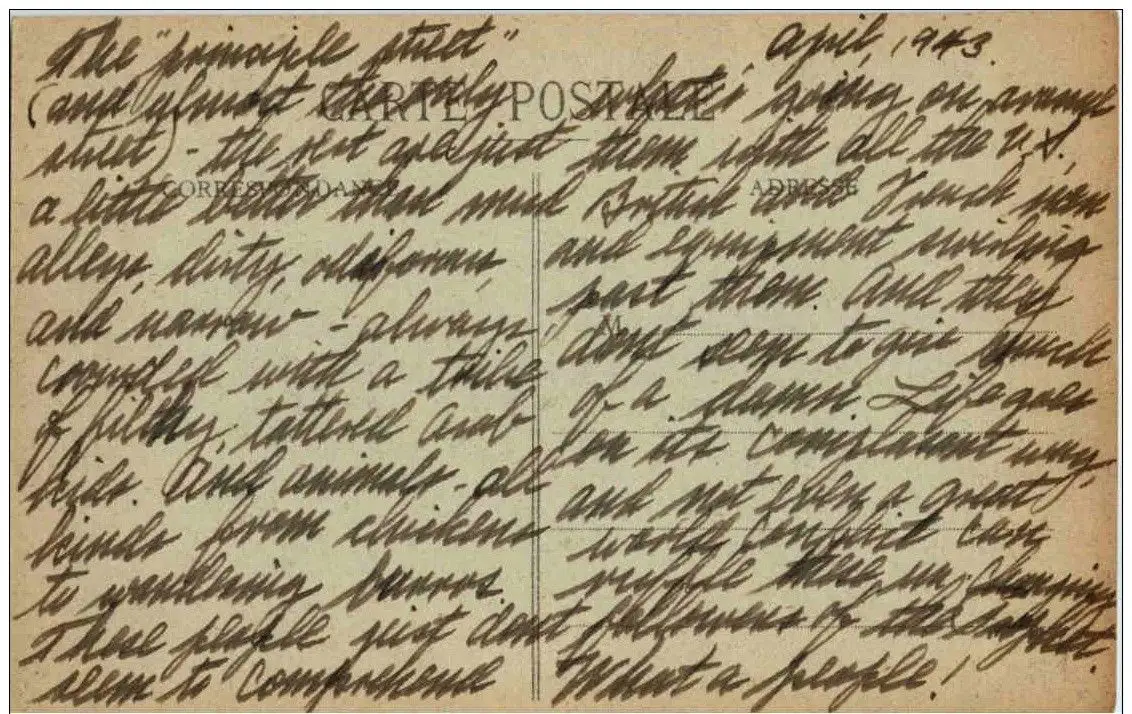 The "principle street"
(and almost the only
street) - the rest are just
a little better than mud
alleys, dirty, odiforous,
and narrow - always
crowded with a tribe
of filthy, tattered Arab
kids. And animals - all
kinds from chickens
to wandering burros.
These people just dont
seem to comprehend
April, 1943.
what's going on around
them with all the U.S.,
British and French men
and equipment swirling
past them. And they
don't seem to give much
of a damn. Life goes
on its complacent way,
and not even a great
world conflict can
ruffle these
followers of the Prophet.
What a people!
CARTE POSTALE
CORRESPONDANCE
ADRESSE